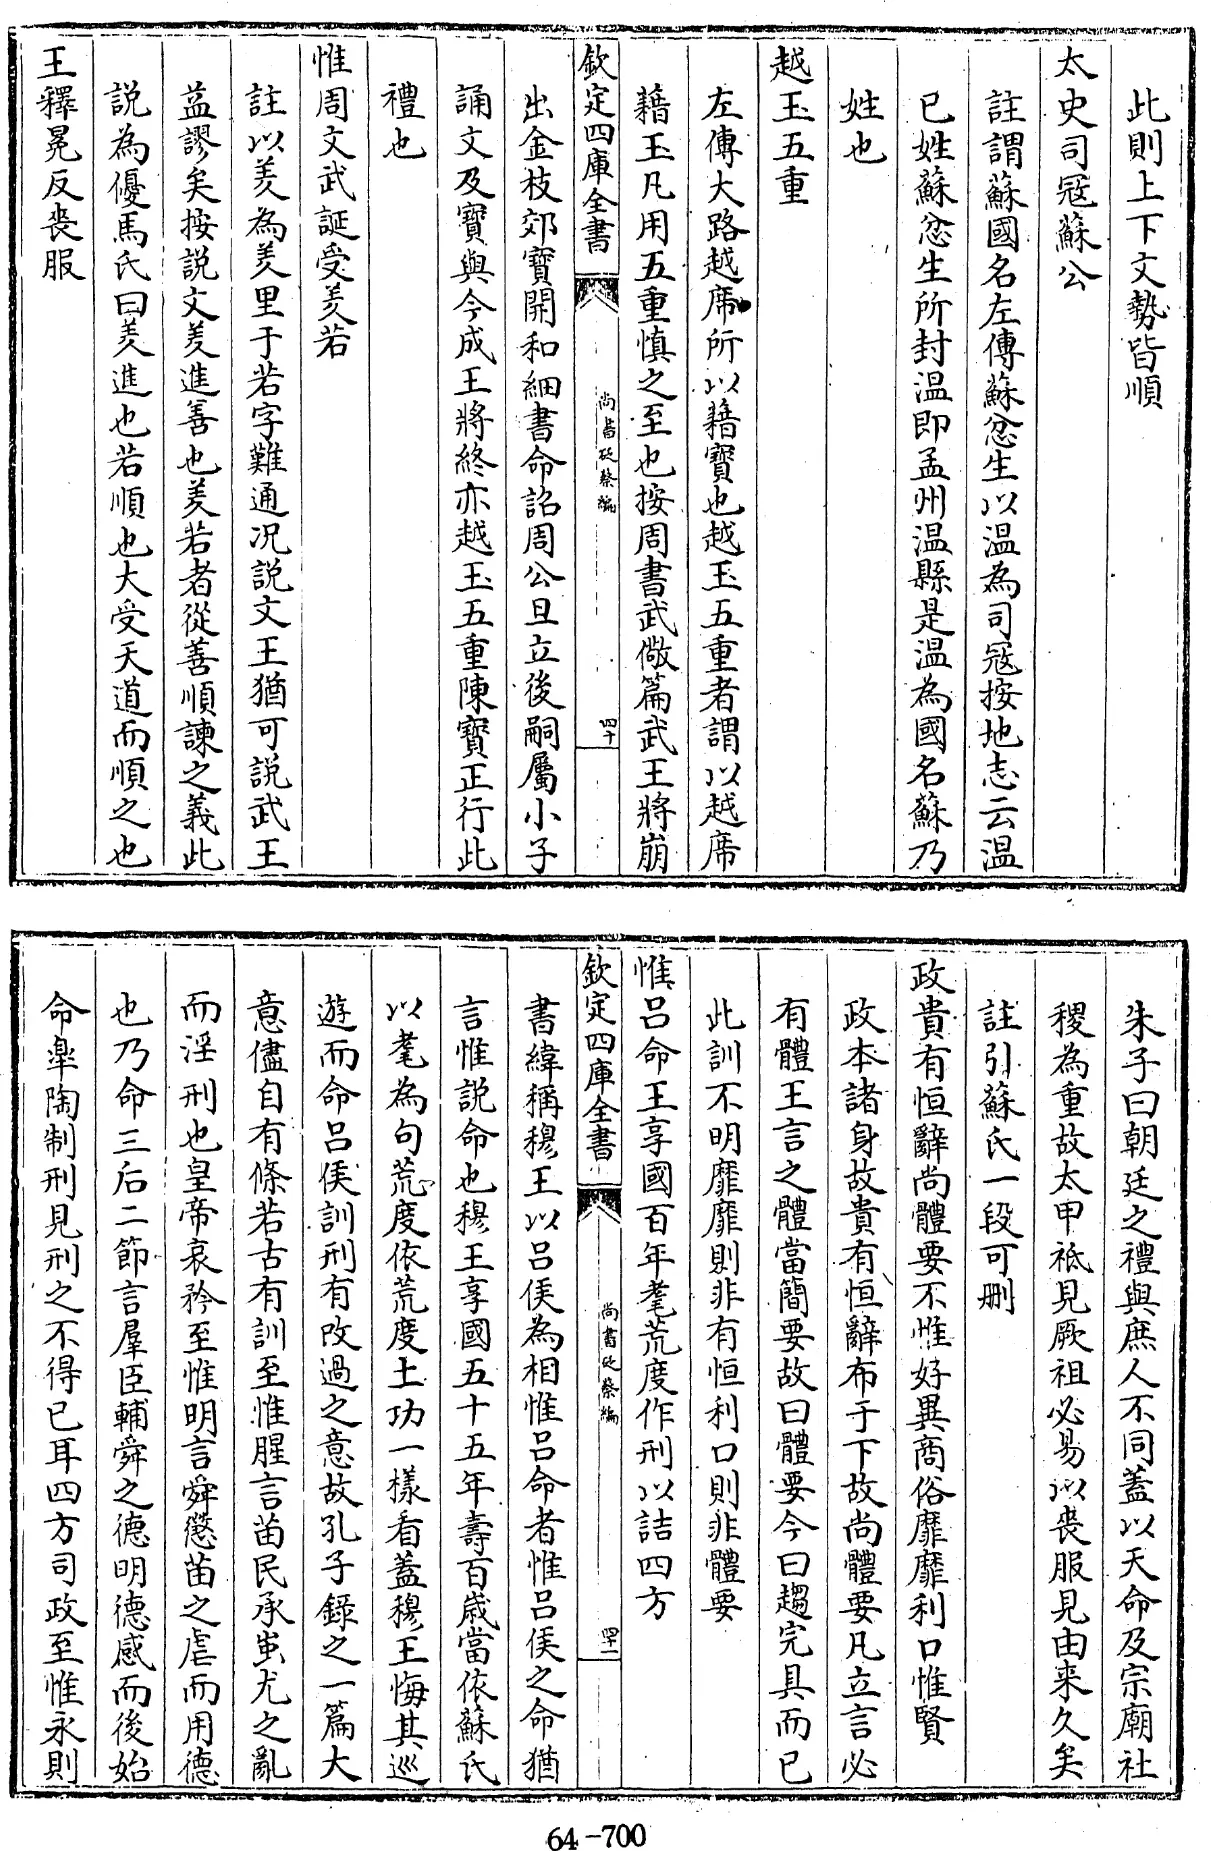 此則上下文勢皆順
太史司寇蘇公
註謂蘇國名左傳蘇忿生以温為司寇按地志云温
已姓蘇忿生所封温即孟州温縣是温為國名蘇乃
姓也
越玉五重
左傳大路越席所以藉寶也越玉五重者謂以越席
藉玉凡用五重慎之至也按周書武儆篇武王將崩
欽定四庫全書
尚書砭蔡編
四十
出金枝郊寶開和細書命詔周公旦立後嗣屬小子
誦文及寶與今成王將終亦越玉五重陳寶正行此
禮也
惟周文武誕受羑若
註以羑為羑里于若字難通况説文王猶可説武王
益謬矣按説文羑進善也羑若者從善順諫之義此
説為優馬氏曰羑進也若順也大受天道而順之也
王釋冕反喪服
朱子曰朝廷之禮與庶人不同蓋以天命及宗廟社
稷為重故太甲祗見厥祖必易以喪服見由来久矣
註引蘇氏一段可刪
政貴有恒辭尚體要不惟好異商俗靡靡利口惟賢
政本諸身故貴有恒辭布于下故尚體要凡立言必
有體王言之體當簡要故曰體要今曰趨完具而已
此訓不明靡靡則非有恒利口則非體要
惟吕命王享國百年耄荒度作刑以詰四方
欽定四庫全書
尚書砭蔡編
四十一
書緯稱穆王以吕侯為相惟吕命者惟吕侯之命猶
言惟説命也穆王享國五十五年壽百歲當依蘇氏
以耄為句荒度依荒度土功一樣看蓋穆王悔其巡
遊而命吕侯訓刑有改過之意故孔子錄之一篇大
意儘自有條若古有訓至惟腥言苗民承蚩尤之亂
而淫刑也皇帝哀矜至惟明言舜懲苗之虐而用德
也乃命三后二節言羣臣輔舜之德明德感而後始
命臯陶制刑見刑之不得已耳四方司政至惟永則
64-700